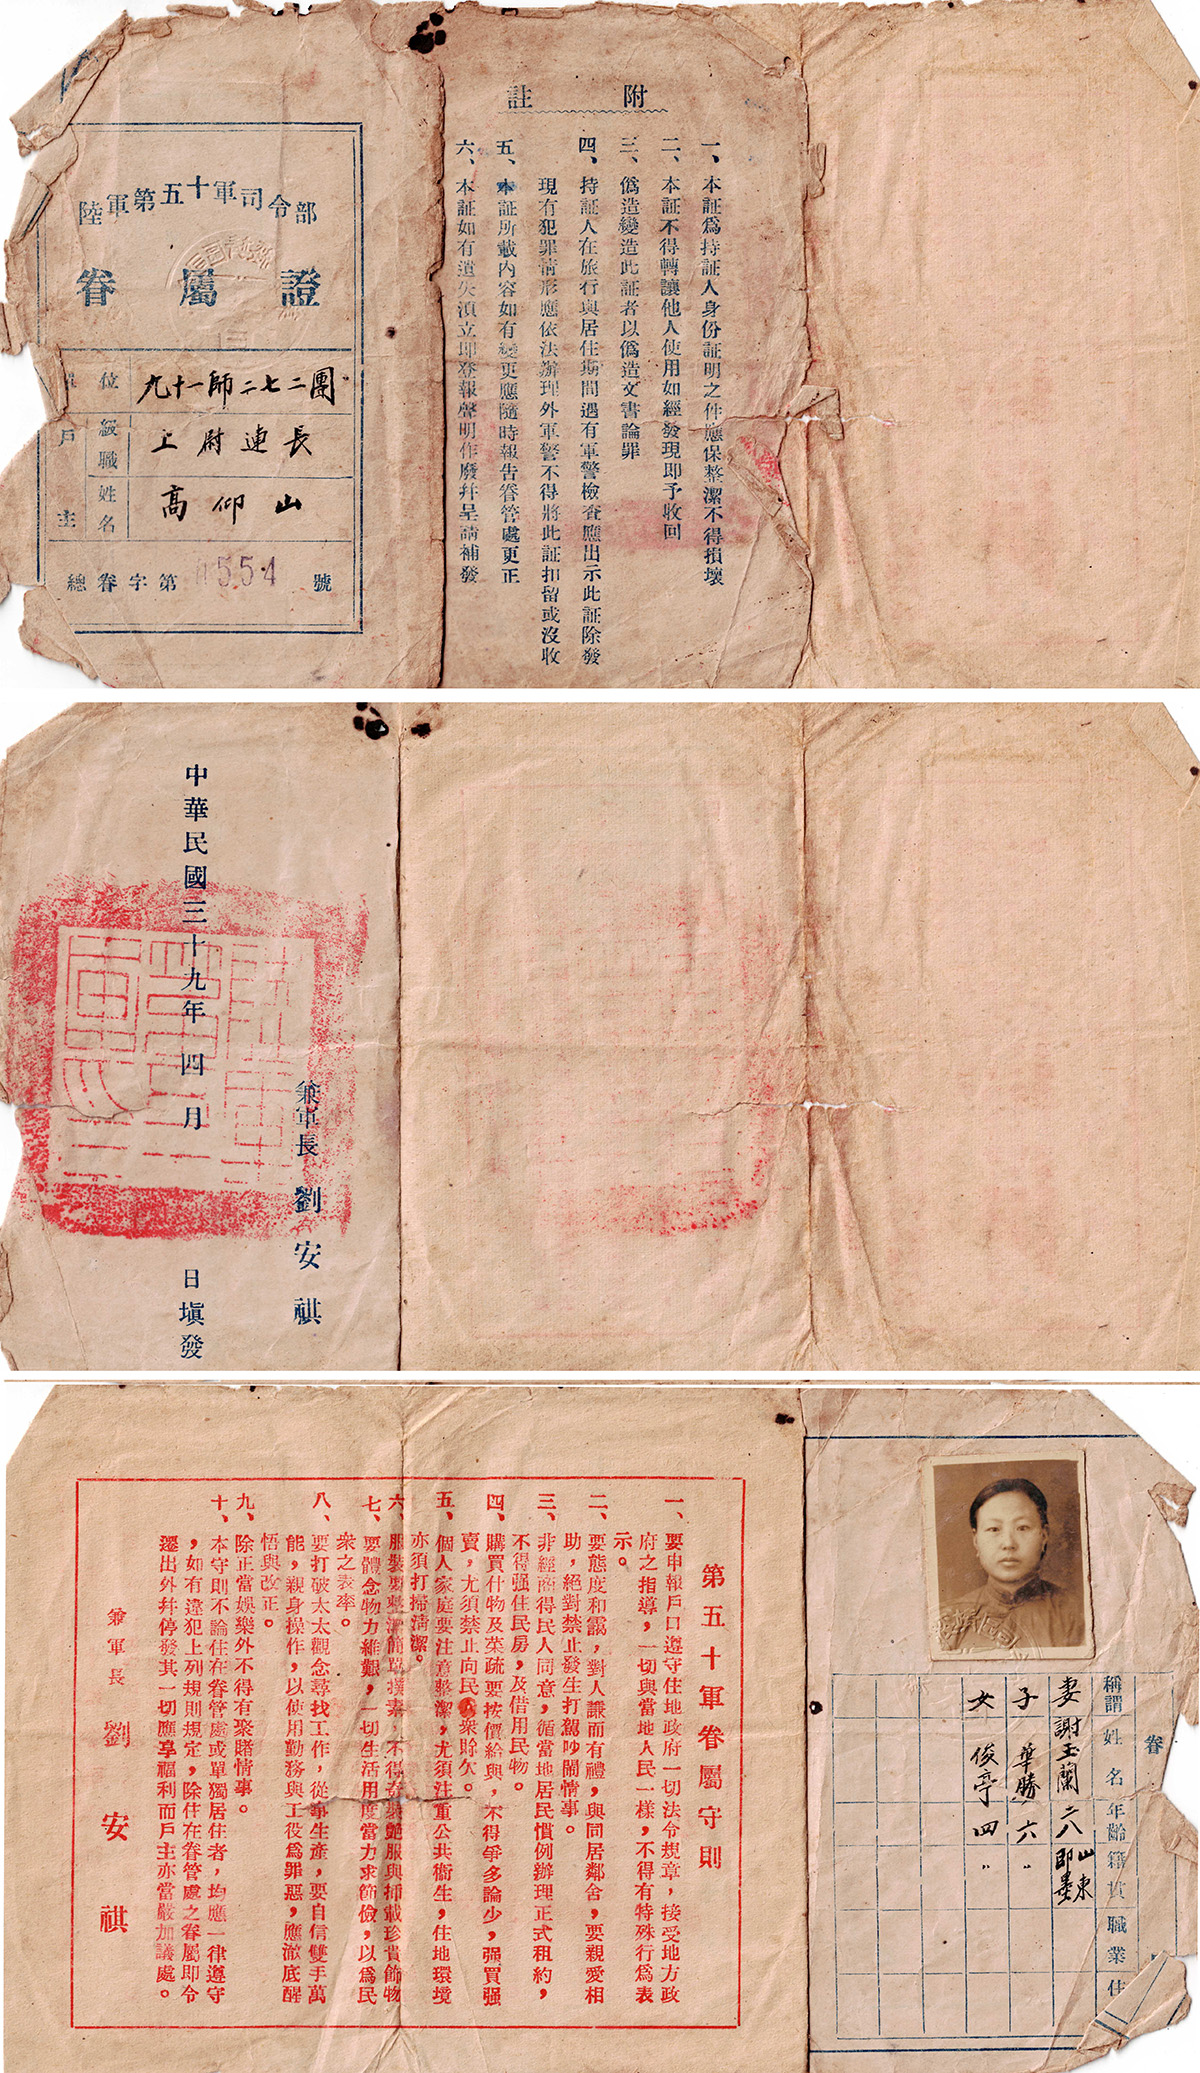 陸軍第五十軍司令部
眷屬證
單位 九十一師二七二團
級職 上尉連長
姓名 高仰山
戶主
總眷字第 1554 號
附註
一、本証爲持証人身份証明之件應保整潔不得損壞
二、本証不得轉讓他人使用如經發現即予收回
三、僞造變造此証者以僞造文書論罪
四、持証人在旅行與居住期間遇有軍警檢查應出示此証除發
現有犯罪情形應依法辦理外軍警不得將此証扣留或沒收
五、本証所載內容如有變更應隨時報告眷管處更正
六、本証如有遺失須立即登報聲明作廢幷呈請補發
兼軍長 劉安祺
中華民國三十九年四月 日塡發
第五十軍眷屬守則
一、要申報戶口遵守住地政府一切法令規章，接受地方政
府之指導，一切與當地人民一樣，不得有特殊行爲表
示。
二、要態度和靄，對人謙而有禮，與同居鄰舍，要親愛相
助，絕對禁止發生打駡吵鬧情事。
三、非經商得民人同意，循當地居民慣例辦理正式租約，
不得强住民房，及借用民物。
四、購買什物及菜疏要按價給與，不得爭多論少，强買强
賣，尤須禁止向民衆賒欠。
五、個人家庭要注意整潔，尤須注重公共衞生，住地環境
亦須打掃淸潔。
六、服裝要整潔簡單樸素，不得奇裝艷服與揷戴珍貴飾物
七、要體念物力維艱，一切生活用度當力求節儉，以爲民
衆之表率。
八、要打破太太觀念尋找工作，從事生產，要自信雙手萬
能，親身操作，以使用勤務與工役爲罪惡，應澈底醒
悟與改正。
九、除正當娛樂外不得有聚賭情事。
十、本守則不論住在眷管處或單獨居住者，均應一律遵守
，如有違犯上列規則規定，除住在眷管處之眷屬即令
遷出外幷停發其一切應享福利而戶主亦當嚴加議處。
兼軍長 劉安祺
眷
稱謂 姓名 年齡 籍貫 職業 住
妻 謝玉蘭 二八 山東即墨
子 華勝 六 〃
女 俊亭 四 〃